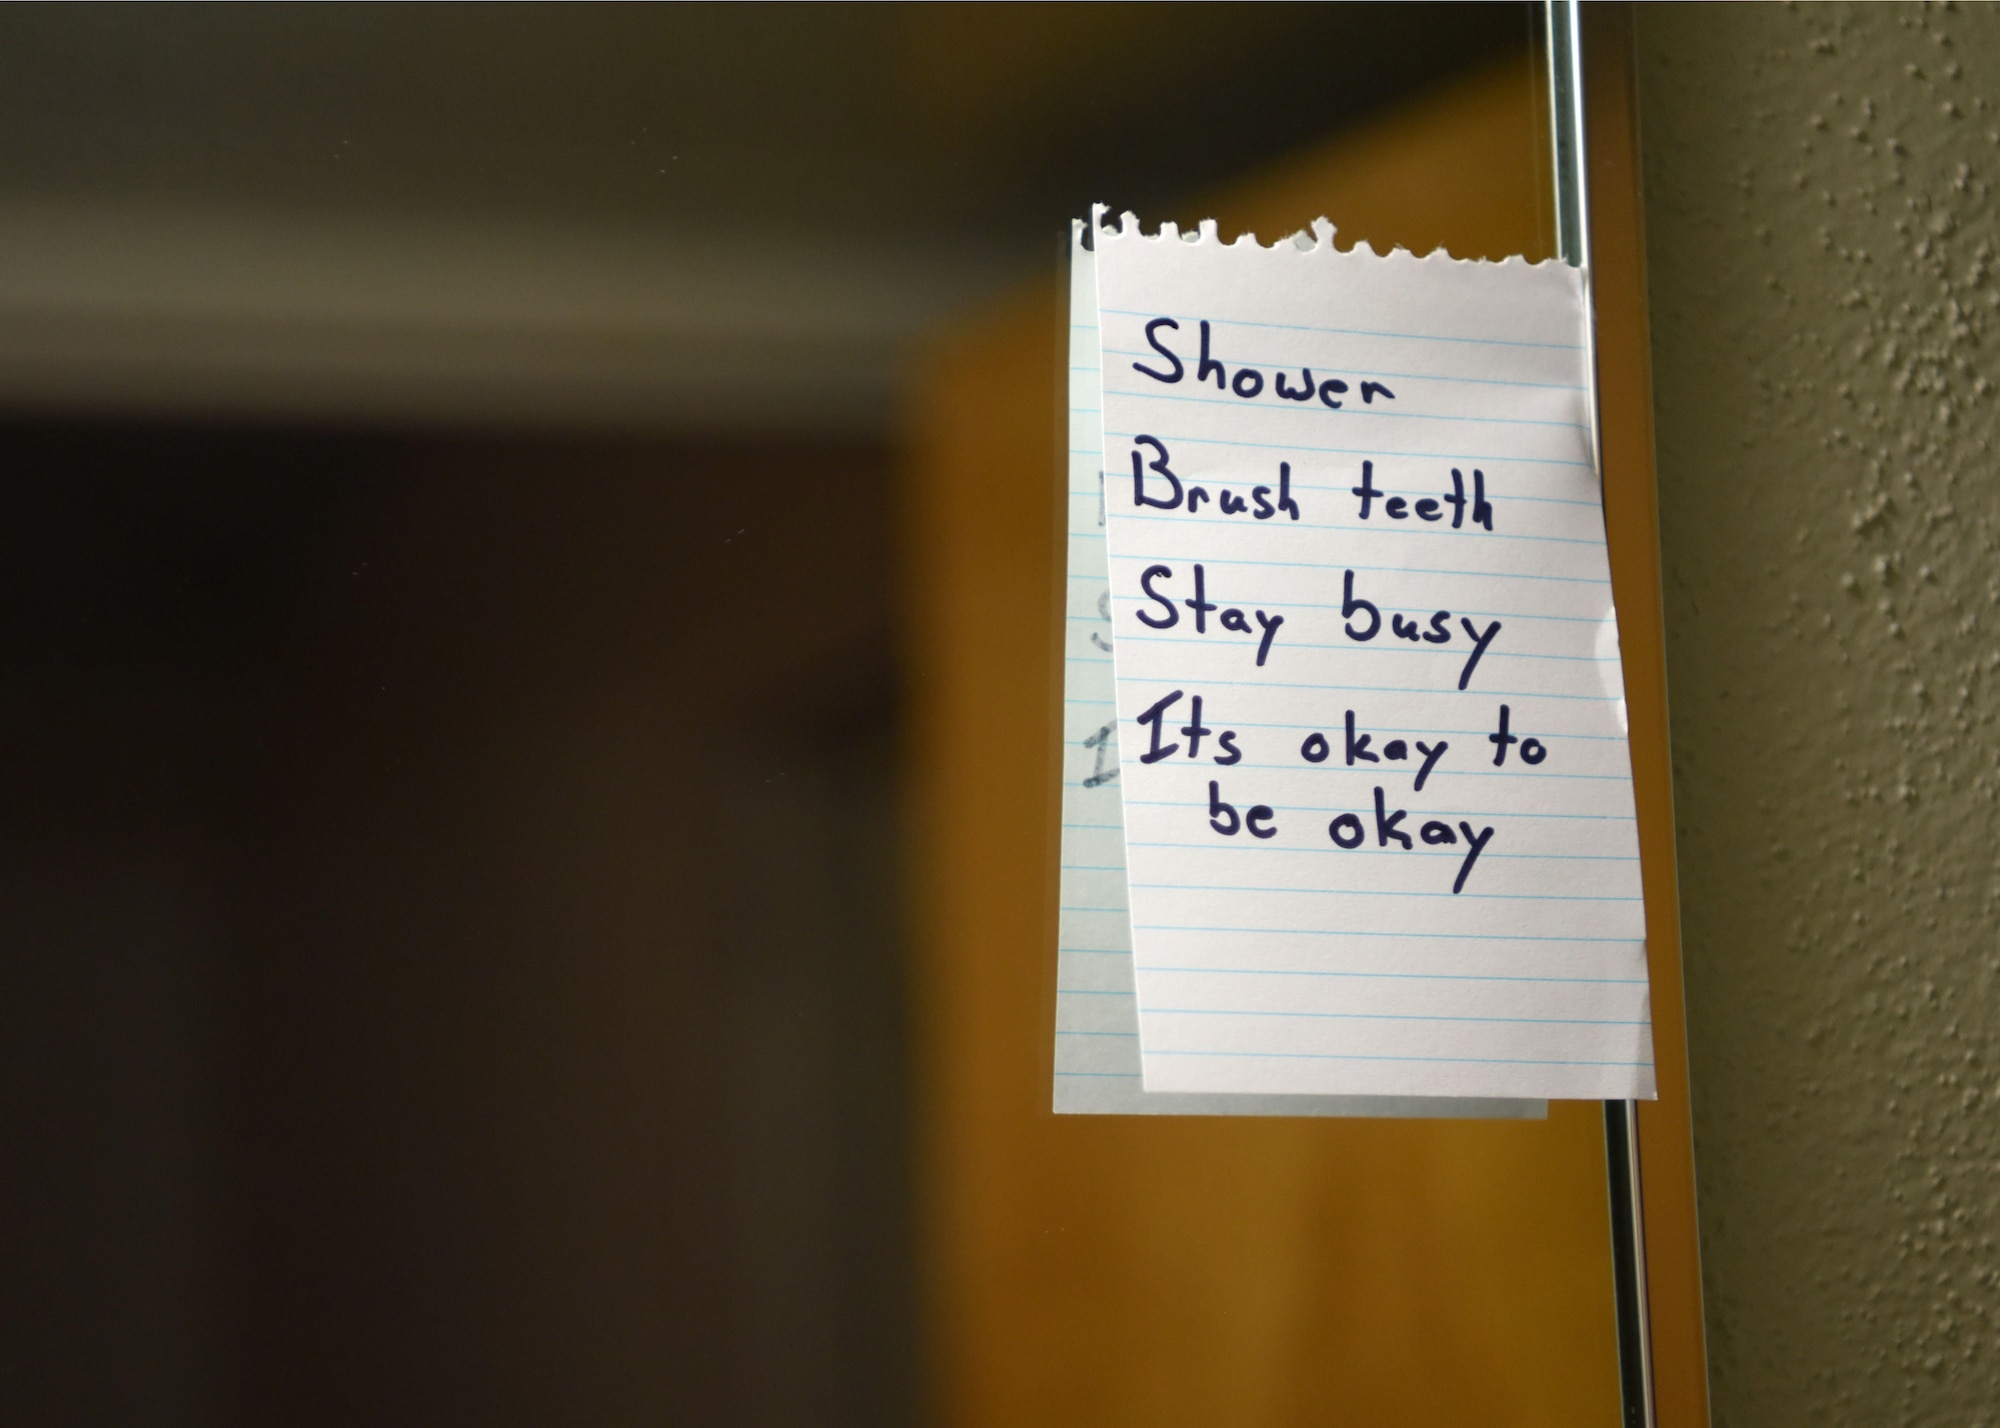 Shower
Brush teeth
Stay busy
Its okay to
be okay